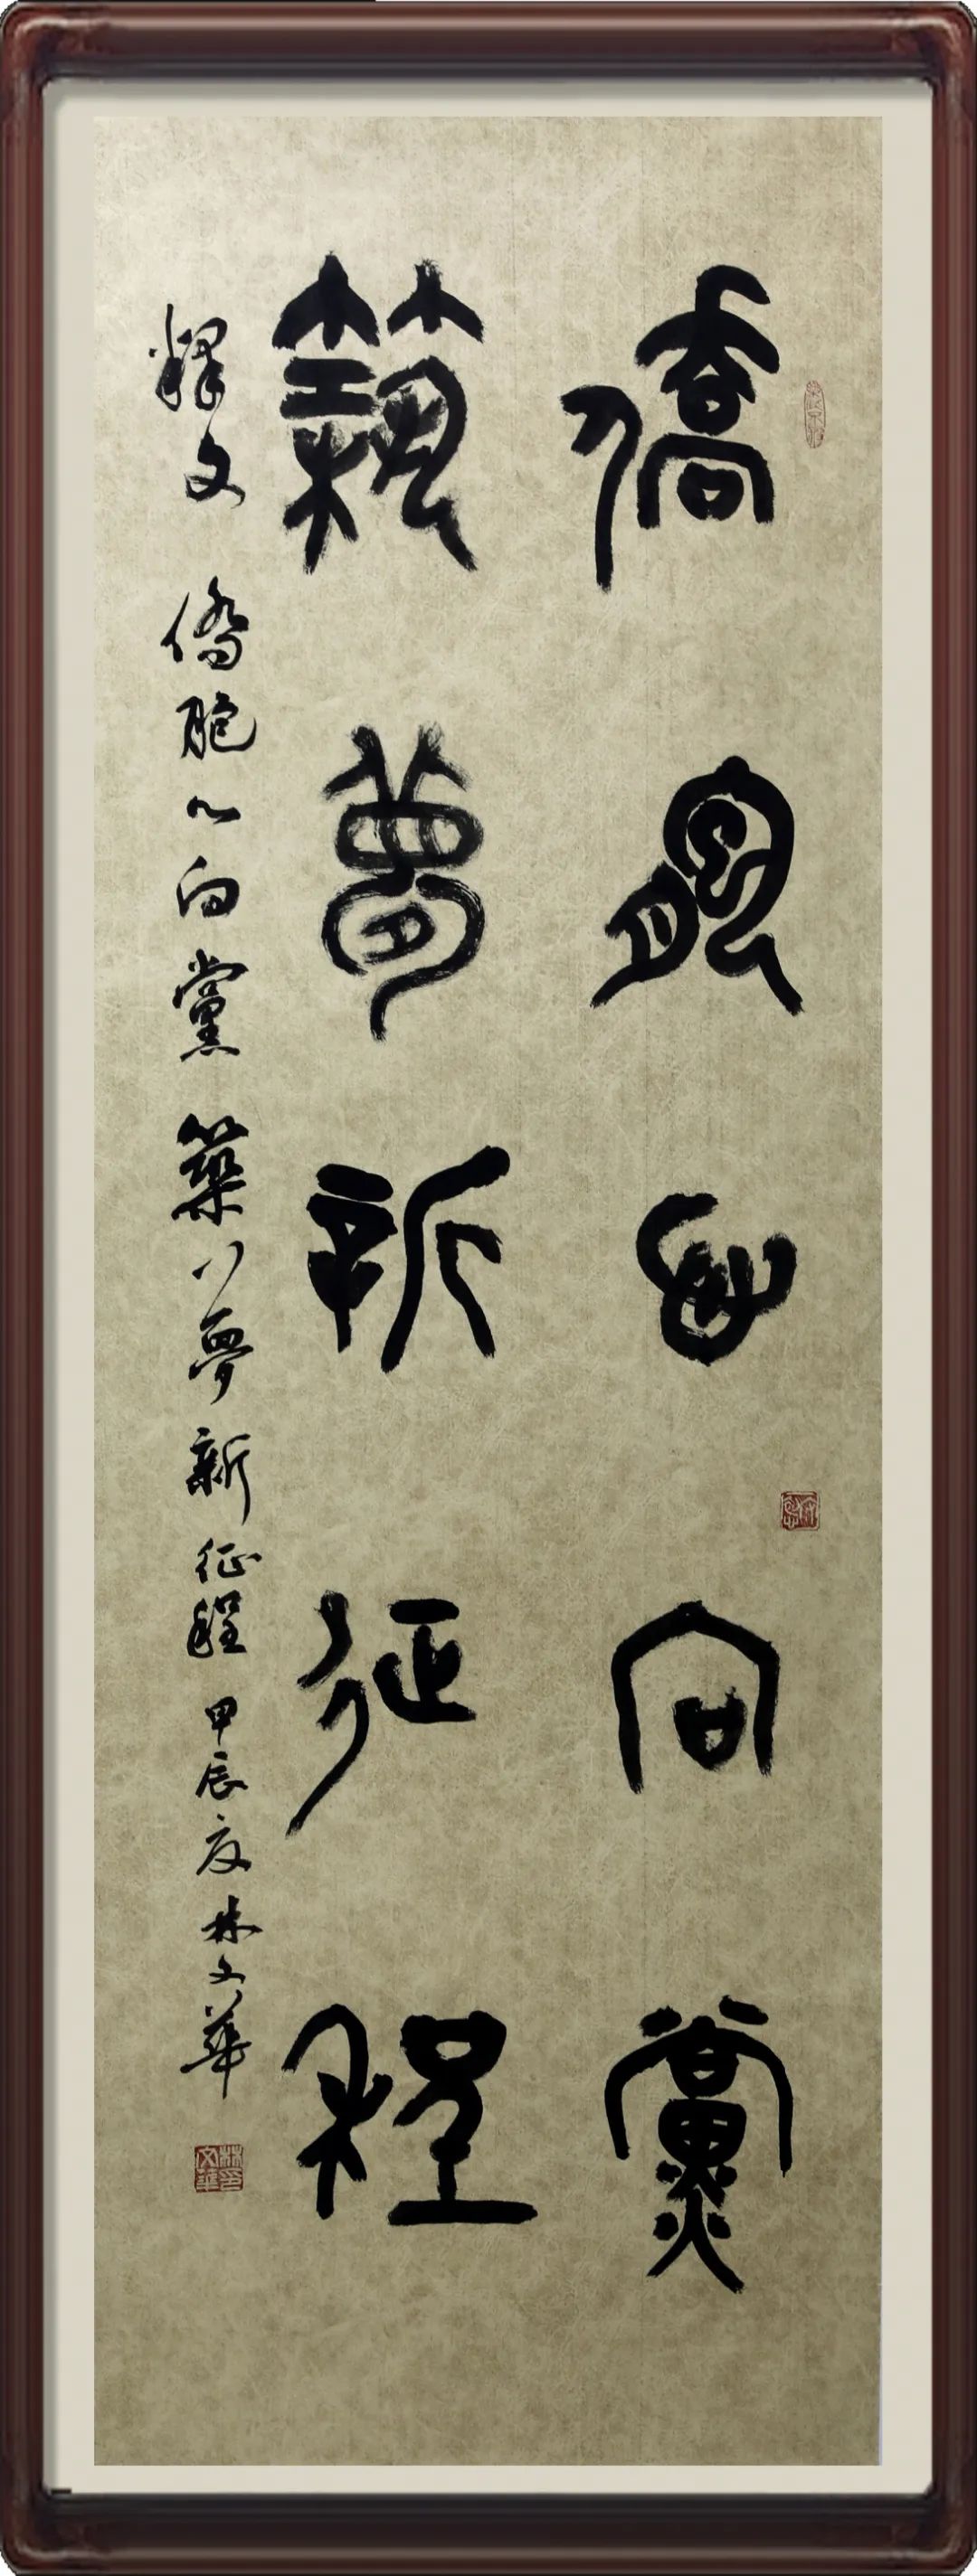 僑胞心向黨
築夢新征程
釋文 僑胞心向黨 築夢新征程 甲辰夏 林文華
林印文華